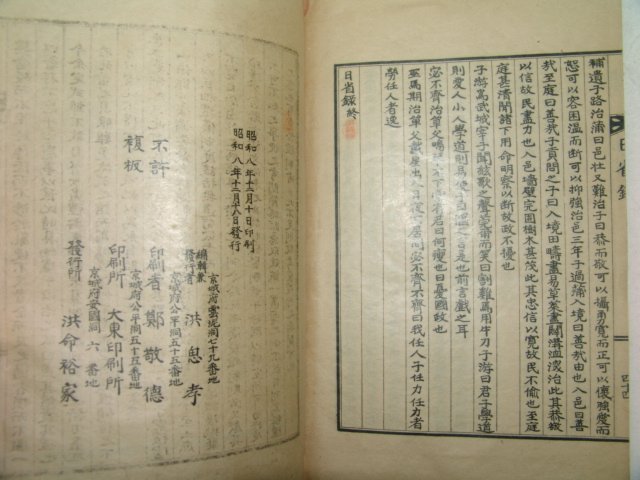 補遺子路治蒲曰邑壮又難治子曰恭而敬可以懾勇寬而正可以懷強愛而
恕可以容困溫而断可以抑強治邑三年子過蒲入境曰善哉由也入邑曰善
哉至庭曰善哉子貢問之子曰入境田疇盡易草萊盡闢溝洫深治此其恭敬
以信故民盡力也入邑墻壁完固樹木甚茂此其忠信以寬故民不偷也至庭
庭甚清閒諸下用命明察以断故政不擾也
子游為武城宰子聞絃歌之聲莞爾而笑曰割雞焉用牛刀子游曰君子學道
則愛人小人學道則易使子曰偃之言是也前言戲之耳
宓不齊治單父鳴琴不下堂 君曰何瘦也曰憂國政也
巫馬期治單父戴星出入 居問宓不齊不齊曰我任人子任力任力者
勞任人者逸
日省錄終
日省錄
四十四
昭和八年十二月十日印刷
昭和八年十二月十八日發行
京城府雲泥洞七十九番地
編輯兼
發行者 洪思孝
京城府公平洞五十五番地
印刷者 鄭敬德
京城府公平洞五十五番地
印刷所 大東印刷所
京城府安國洞六番地
發行所 洪命裕家
不許
複板